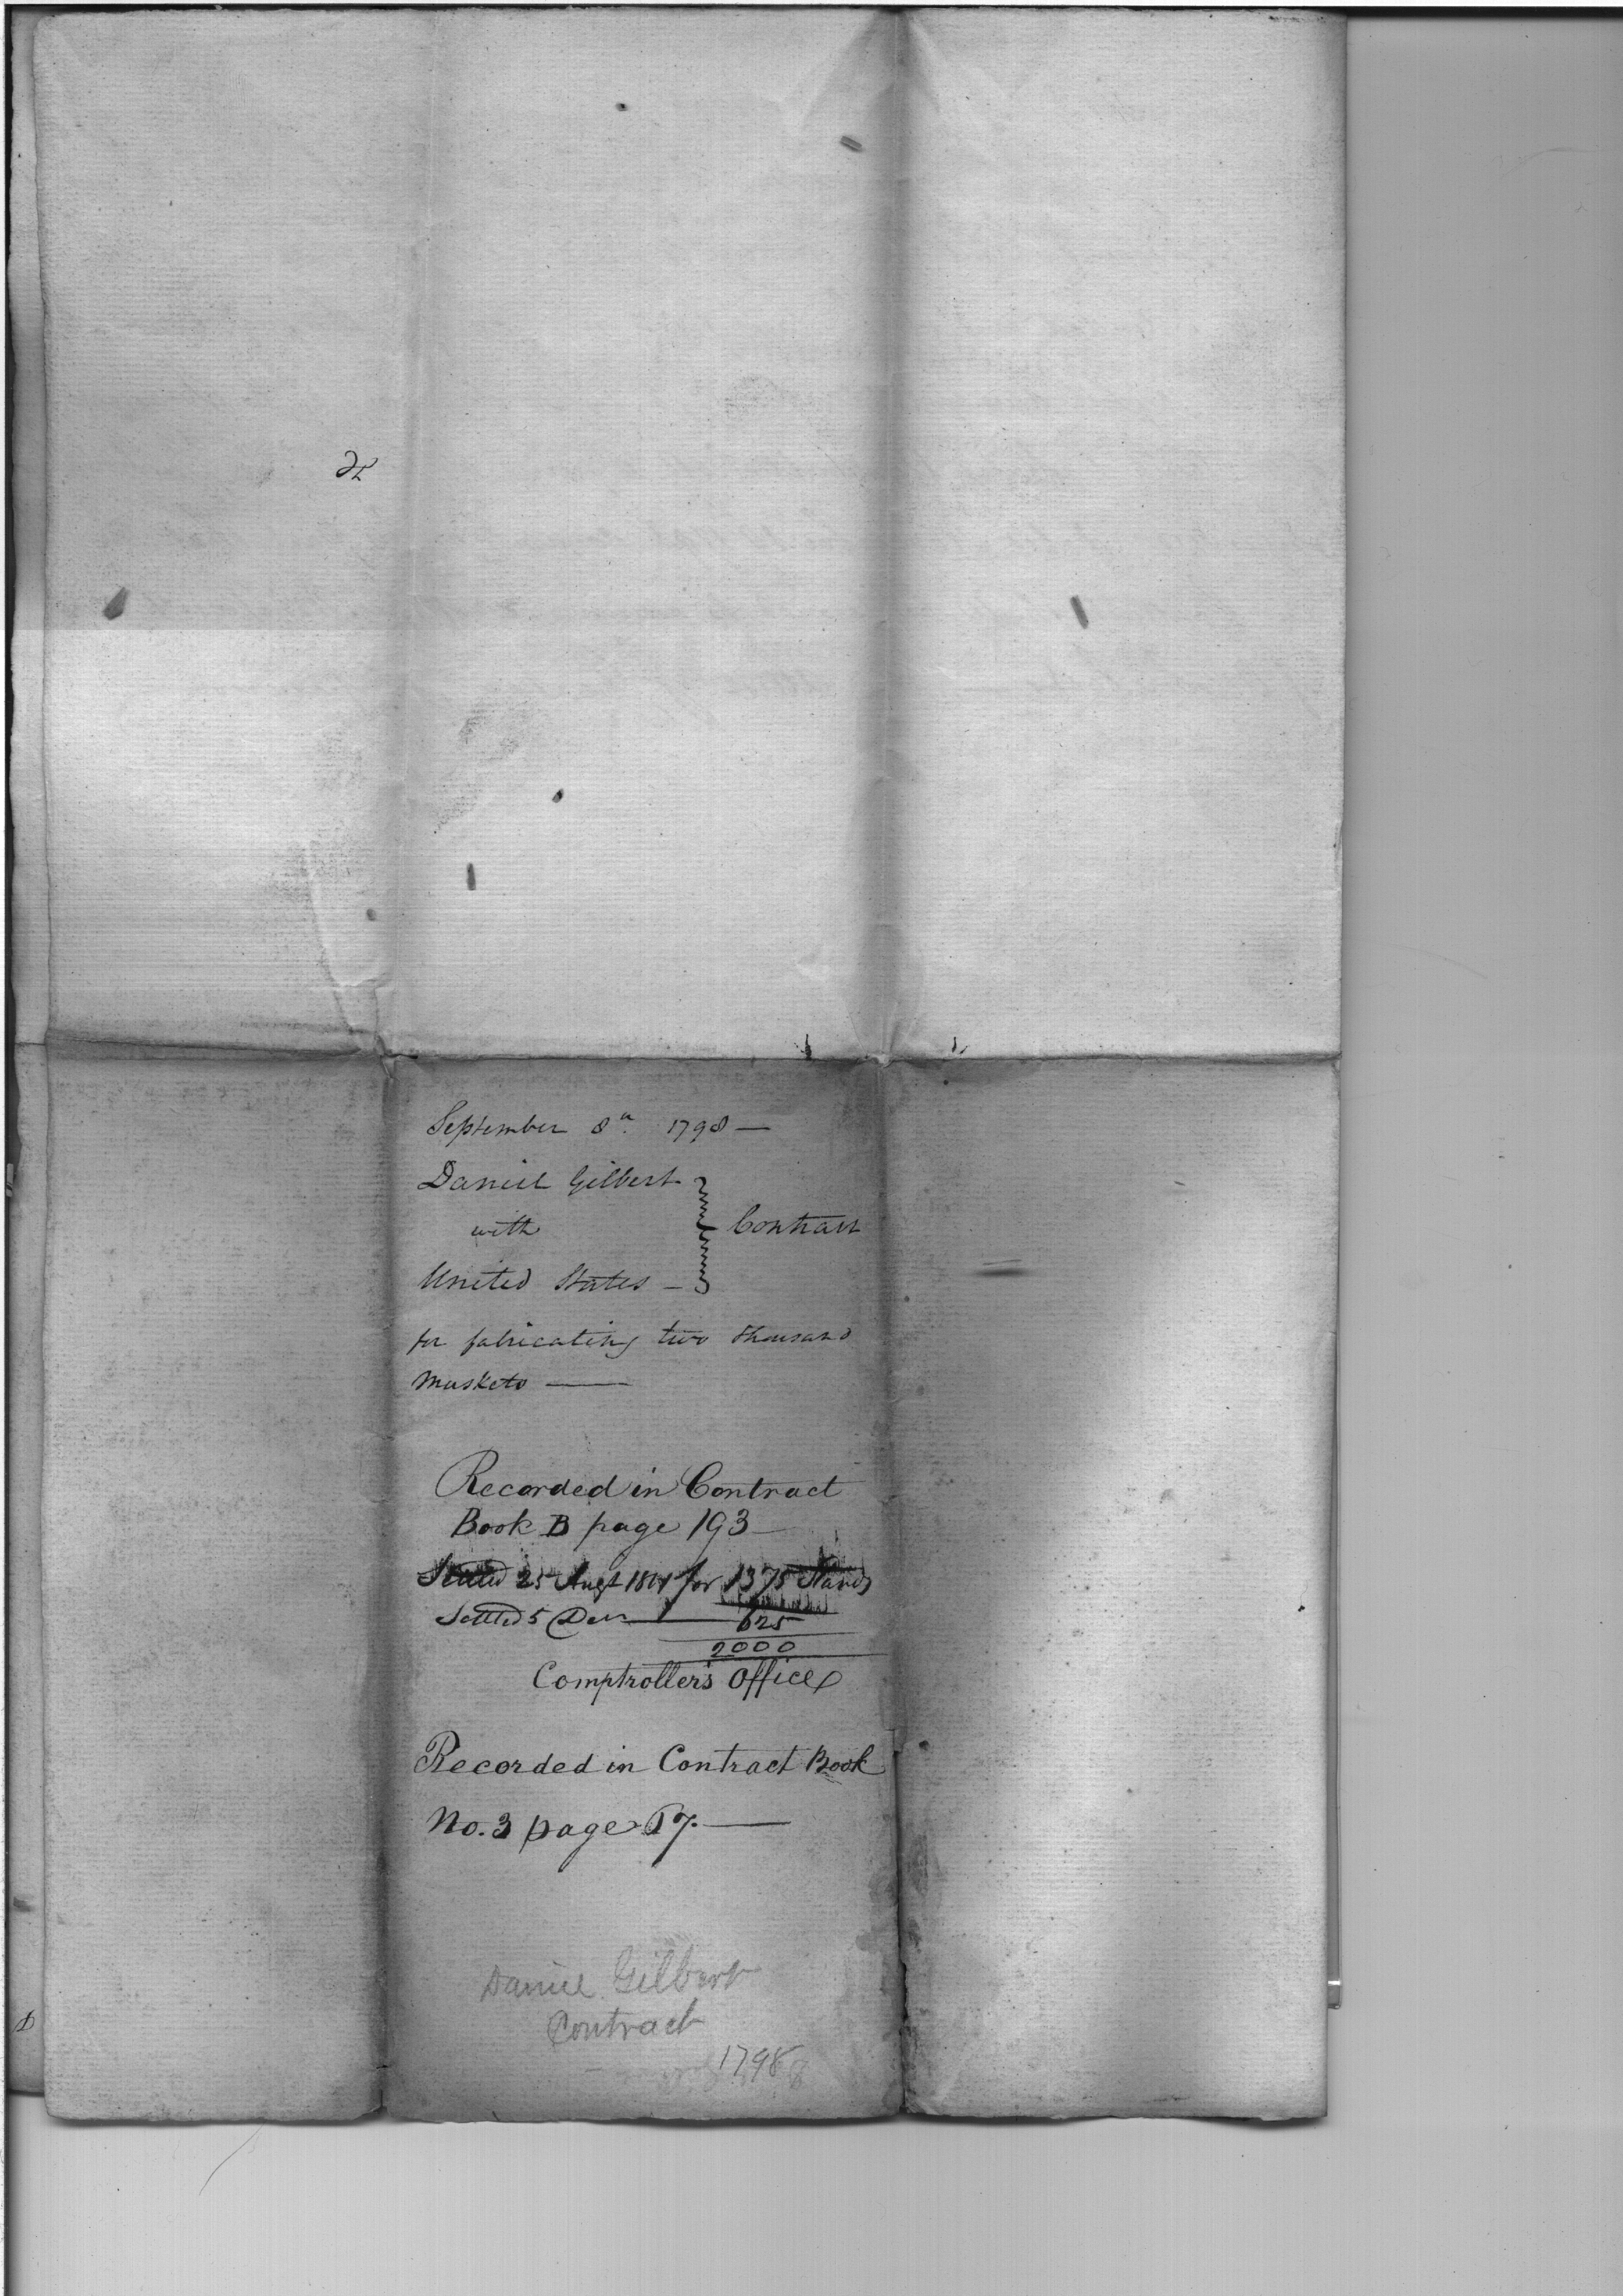 September 8th 1798 —
Daniel Gilbert
with
Contract
United States —
for fabricating two thousand
Muskets —
Recorded in Contract
Book B page 193
Settled 25 Augt for 1375 Stands
Settled 5 Decr — 625
2000
Comptroller's Office
Recorded in Contract Book
No. 3 page
Daniel Gilbert
Contract
1798